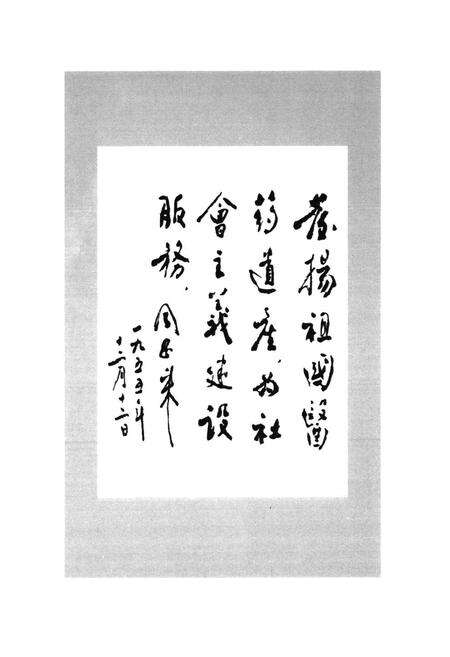 发扬祖國醫
药遺產，为社
會主義建设
服務．周恩来
一九五五年
十二月十二日